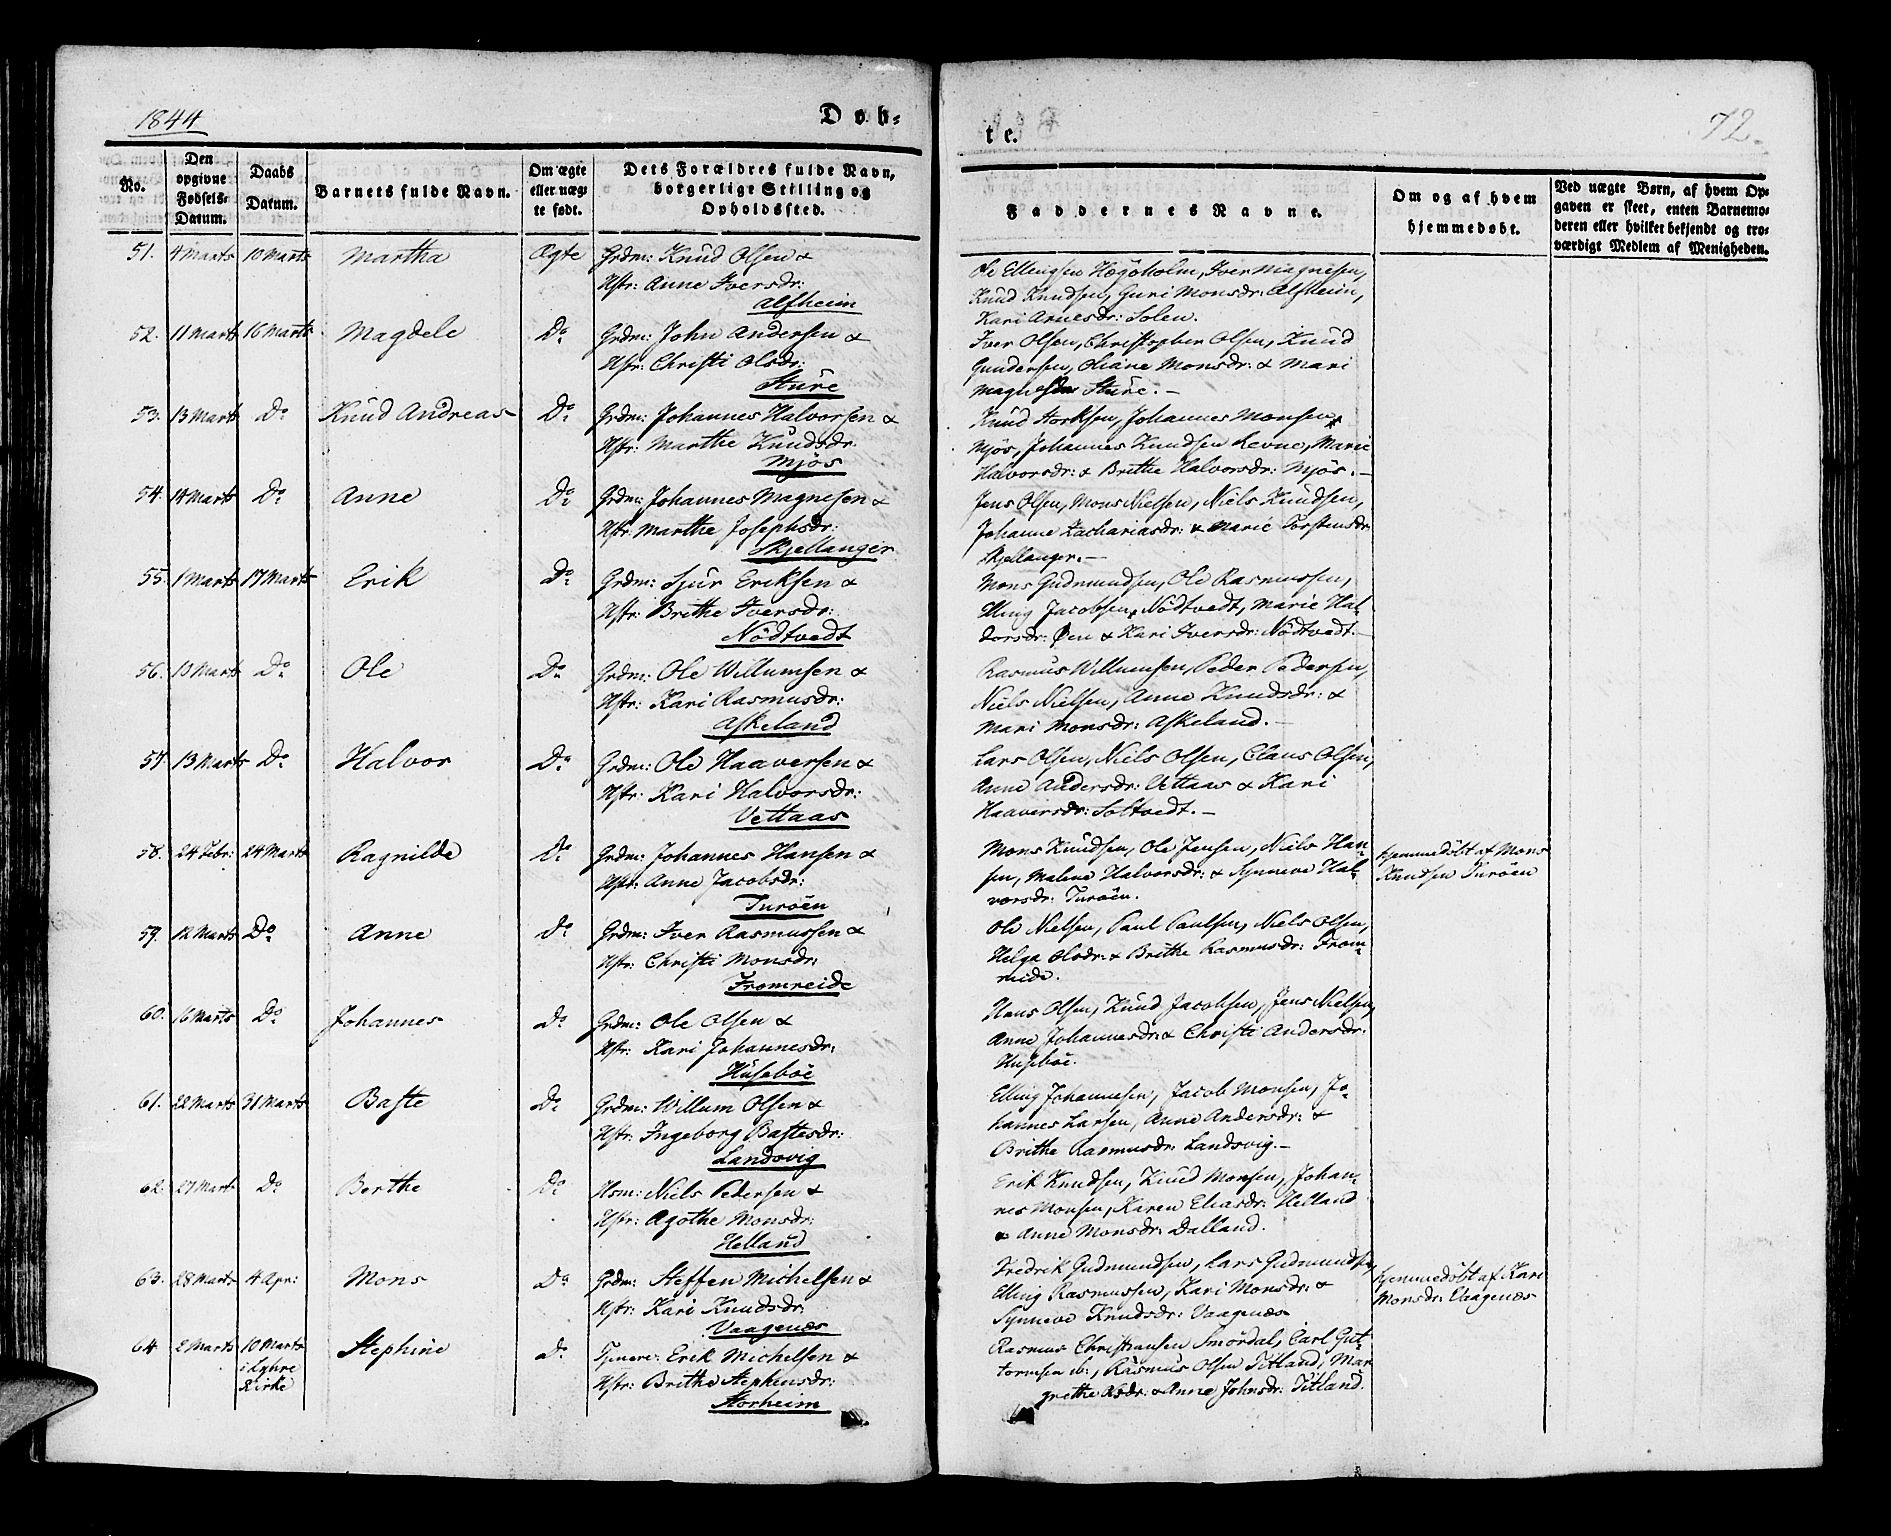 1844
Döb-
te.
72.
No.
Den opgivne Fødsels-Datum.
Daabs Datum.
Barnets fulde Navn.
Om ægte eller uæg-te født.
Dets Forældres fulde Navn, borgerlige Stilling og Opholdssted.
Faddernes Navne.
Om og af hvem hjemmedøbt.
Ved uægte Børn, af hvem Op-
gaven er skeet, enten Barnemo-
deren eller hvilket bekjendt og tro-
værdigt Medlem af Menigheden.
51. 4 Marts 10 Marts Martha Ægte Grdm: Knud Olsen &
Hstr: Anne Iversdr:
Alfheim
Ole Ellingsen Hægöholm, Iver Magnesen,
Knud Knudsen, Guri Monsdr: Alfheim,
Kari Arnesdr: Solen.
52. 11 Marts 16 Marts Magdele Do Grdm: John Andersen &
Hstr: Christi Olsdr:
Sture
Iver Olsen, Christopher Olsen, Knud
Gundersen, Oliane Monsdr: & Mari
Magnesdr Sture. -
53. 13 Marts Do Knud Andreas Do Grdm: Johannes Halvorsen &
Hstr: Marthe Knudsdr:
Mjös
Knud Storksen, Johannes Monsen
Mjös, Johannes Knudsen Levne, Marie
Halvorsdr: & Brithe Halvorsdr: Mjös. -
54. 14 Marts Do Anne Do Grdm: Johannes Magnesen &
Hstr: Marthe Josephsdr:
Skjellanger
Jens Olsen, Mons Nielsen, Niels Knudsen,
Johanne Zachariasdr: & Marie Torstensdr:
Skjellanger. -
55. 1 Marts 17 Marts Erik Do Grdm: Sjur Eriksen &
Hstr: Brithe Iversdr:
Nödtvedt
Mons Gudmundsen, Ole Rasmussen,
Elling Jacobsen, Nödtvedt, Marie Hal-
dorsdr: Øen & Kari Iversdr: Nödtvedt. -
56. 13 Marts Do Ole Do Grdm: Ole Willumsen &
Hstr: Kari Rasmusdr:
Askeland
Rasmus Willumsen, Peder Pedersen,
Niels Nielsen, Anne Knudsdr: &
Mari Monsdr: Askeland. -
57. 13 Marts Do Halvor Do Grdm: Ole Haaversen &
Hstr: Kari Halvorsdr:
Vettaas
Lars Olsen, Niels Olsen, Claus Olsen,
Anne Andersdr: Vettaas & Kari
Haaversdr: Soltvedt. -
58. 24 Febr: 24 Marts Ragnilde Do Grdm: Johannes Hansen &
Hstr: Anne Jacobsdr:
Turöen
Mons Knudsen, Ole Jensen, Niels Han-
sen, Malene Halvorsdr: & Synneve Hal-
vorsdr: Turöen.
hjemmedöbt af Mons
Knudsen Turöen
59. 12 Marts Do Anne Do Grdm: Iver Rasmussen &
Hstr: Christi Monsdr:
Fromreide
Ole Nielsen, Paul Paulsen, Niels Olsen,
Helga Olsdr: & Brithe Rasmusdr: From-
reide.
60. 16 Marts Do Johannes Do Grdm: Ole Olsen &
Hstr: Kari Johannesdr:
Huseböe
Hans Olsen, Knud Jacobsen, Jens Nielsen,
Anne Johannesdr: & Christi Andersdr:
Huseböe.
61. 22 Marts 31 Marts Baste Do Grdm: Willum Olsen &
Hstr: Ingeborg Bastesdr:
Landsvig
Elling Johannesen, Jacob Monsen, Jo-
hannes Larsen, Anne Andersdr: &
Brithe Rasmusdr: Landsvig. -
62. 27 Marts Do Berthe Do Hsm: Niels Pedersen &
Hstr: Agothe Monsdr:
Helland
Erik Knudsen, Knud Monsen, Johan-
nes Monsen, Karen Eliasdr: Helland
& Anne Monsdr: Dalland.
63. 28 Marts 4 Apr: Mons Do Grdm: Steffen Michelsen &
Hstr: Kari Knudsdr:
Vaagenæs
Fredrik Gudmundsen, Lars Gudmundsen,
Elling Rasmussen, Kari Monsdr: &
Synneve Knudsdr: Vaagenæs
hjemmedöbt af Kari
Monsdr: Vaagenæs
64 2 Marts 10 Marts
i Lyhre
Kirke Stephine Do Tjenere: Erik Michelsen &
Hstr: Brithe Stephensdr:
Storheim
Rasmus Christiansen Smördal, Carl Gut-
tormsen ib:, Rasmus Olsen Titland, Mar
grethe Olsdr: & Anne Johnsdr: Titland.